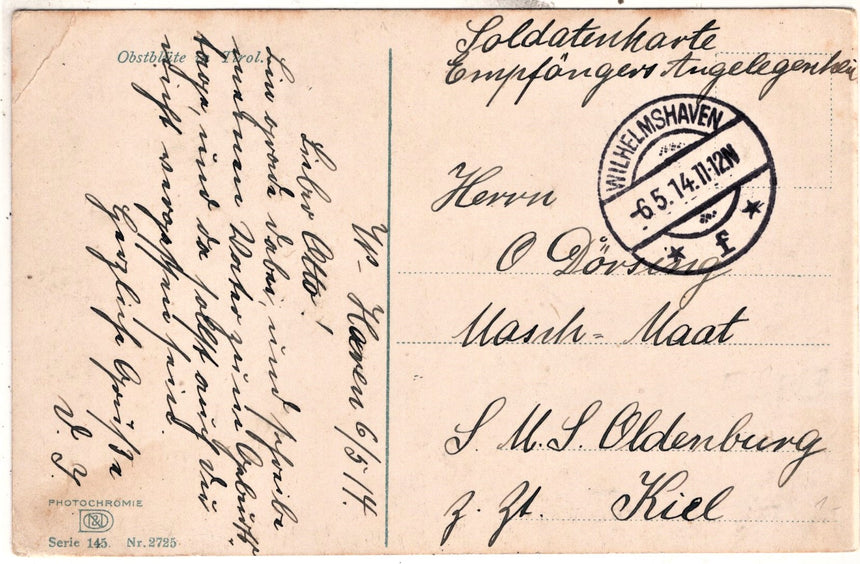 Obstblüte in Tirol.
W- Haven 6/5.14.
Lieber Otto!
Bin grade dabei, und schreibe
meinem Vater zum Geburts-
tage, und da sollst auch du
nicht vergessen sein.
Herzliche Grüße
D. J.
PHOTOCHROMIE
N&D
Serie 145. Nr. 2725
Soldatenkarte
Empfängers Angelegenhei
WILHELMSHAVEN
-6.5.14.11-12N
* f *
Herrn
O Dörsing
Masch- Maat
S. M. S. Oldenburg
z. Zt. Kiel